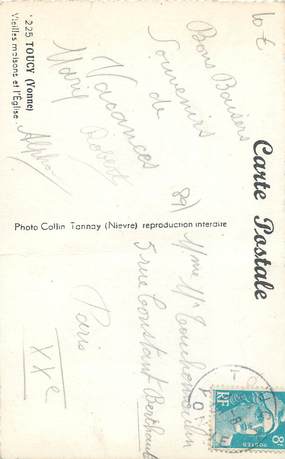 Carte Postale
225 TOUCY (Yonne)
Vieilles maisons et l'Eglise
Bons Baisers
Souvenirs
de
Vacances
Robert
Marie
Photo Collin Tannay (Nievre) reproduction interdite
Mme Mr
5 rue Constant Berthaut
Paris
XXe
RF
POSTES
8F